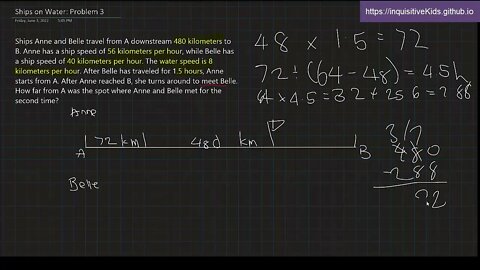 Ships on Water: Problem 3
https://inquisitiveKids.github.io
Friday, June 3, 2022 5:05 PM
Ships Anne and Belle travel from A downstream 480 kilometers to
B. Anne has a ship speed of 56 kilometers per hour, while Belle has
a ship speed of 40 kilometers per hour. The water speed is 8
kilometers per hour. After Belle has traveled for 1.5 hours, Anne
starts from A. After Anne reached B, she turns around to meet Belle.
How far from A was the spot where Anne and Belle met for the
second time?
48 x 1.5 = 72
72 ÷ (64 - 48) = 4.5h
64 x 4.5 = 32 + 256 = 288
Anne
72 km 480 km
A B
Belle
3 17
480
-288
92